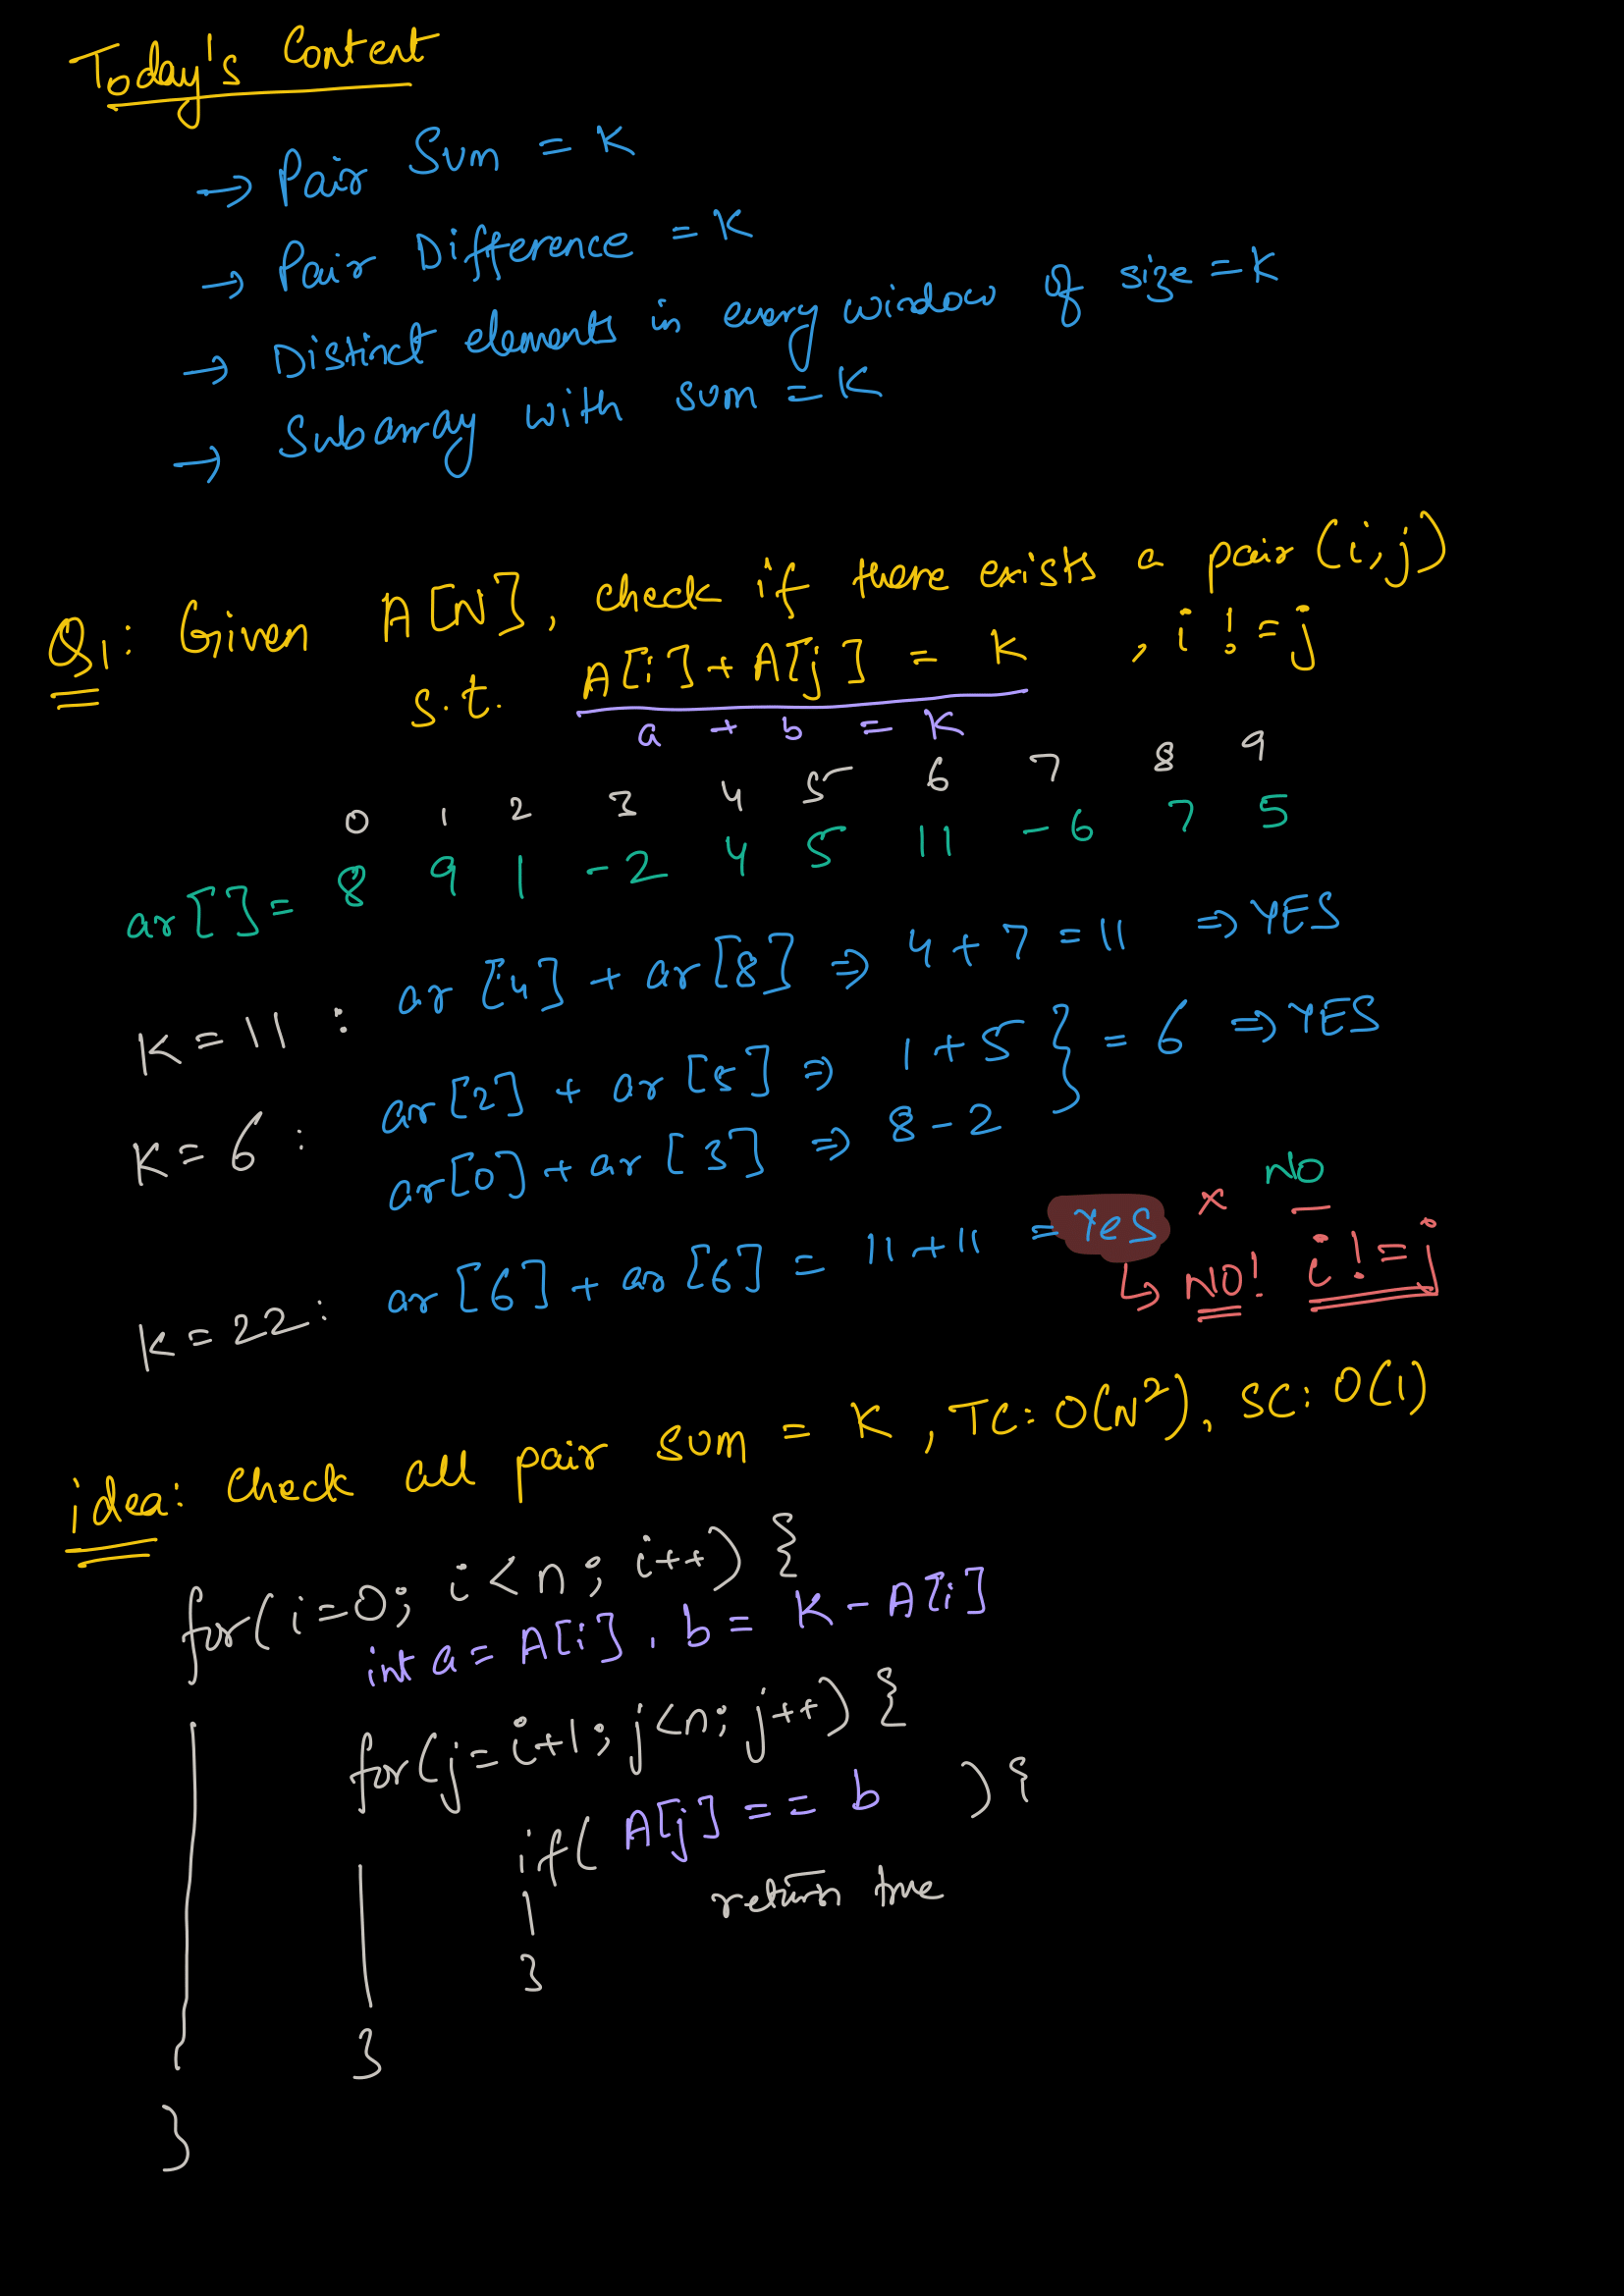 Today's Content
→ Pair Sum = K
→ Pair Difference = K
→ Distinct elements in every window of size = K
→ Subarray with sum = K
Q1: Given A[N], check if there exists a pair (i,j)
s.t. A[i] + A[j] = K , i != j
a + b = K
0 1 2 3 4 5 6 7 8 9
ar[] = 8 9 1 -2 4 5 11 -6 7 5
K = 11 : ar[4] + ar[8] ⇒ 4 + 7 = 11 ⇒ YES
K = 6 : ar[2] + ar[5] ⇒ 1 + 5 } = 6 ⇒ YES
ar[0] + ar[3] ⇒ 8 - 2
K = 22 : ar[6] + ar[6] = 11 + 11 = Yes × NO
↳ NO! i != j
idea: Check all pair sum = K , TC: O(N²), SC: O(1)
for(i=0; i<n; i++) {
int a = A[i], b = K - A[i]
for(j=i+1; j<n; j++) {
if( A[j] == b ) {
return true
}
}
}